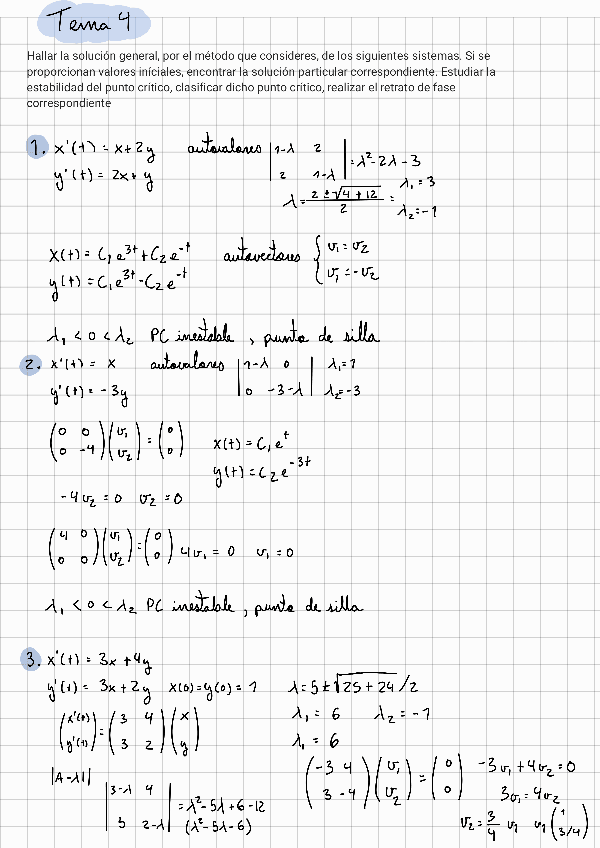 Tema 4
Hallar la solución general, por el método que consideres, de los siguientes sistemas. Si se
proporcionan valores iníciales, encontrar la solución particular correspondiente. Estudiar la
estabilidad del punto crítico, clasificar dicho punto crítico, realizar el retrato de fase
correspondiente
1. x'(t) = x+2y autovalores |1-λ 2| = λ²-2λ-3
y'(t) = 2x+y |2 1-λ|
λ = (2±√(4+12))/2 = λ₁=3
λ₂=-1
x(t) = C₁e^{3t}+C₂e^{-t} autovectores { v₁=v₂
y(t) = C₁e^{3t}-C₂e^{-t} { v₁=-v₂
λ₁<0<λ₂ PC inestable, punto de silla
2. x'(t) = x autovalores |1-λ 0| λ₁=1
y'(t) = -3y |0 -3-λ| λ₂=-3
(0 0; 0 -4)(v₁; v₂) = (0; 0) x(t) = C₁e^{t}
y(t) = C₂e^{-3t}
-4v₂=0 v₂=0
(4 0; 0 0)(v₁; v₂) = (0; 0) 4v₁=0 v₁=0
λ₁<0<λ₂ PC inestable, punto de silla
3. x'(t) = 3x+4y
y'(t) = 3x+2y x(0)=y(0)=1 λ=5±√(25+24)/2
(x'(0); y'(t)) = (3 4; 3 2)(x; y) λ₁=6 λ₂=-1
λ₁=6
(-3 4; 3 -4)(v₁; v₂) = (0; 0) -3v₁+4v₂=0
3v₁=4v₂
v₂=3/4 v₁ v₁(1; 3/4)
|A-λI|
|3-λ 4| = λ²-5λ+6-12
|3 2-λ| (λ²-5λ-6)